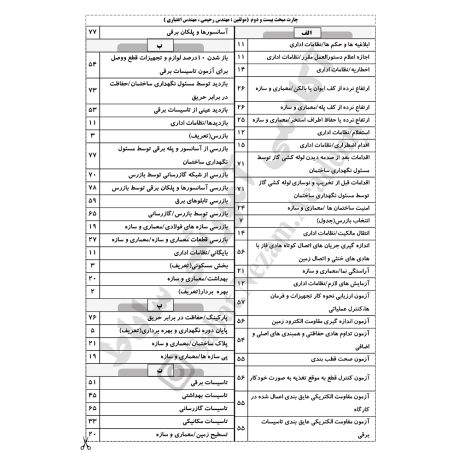 چارت مبحث بیست و دوم (مولفین : مهندس رحیمی ، مهندس اعتباری )
الف
ابلاغیه ها و حکم ها/نظامات اداری ۱۱
اجازه اعلام دستورالعمل مقرر/نظامات اداری ۱۱
اخطاریه/نظامات اداری ۱۴
ارتفاع نرده از کف ایوان یا بالکن/معماری و سازه ۲۶
ارتفاع نرده از کف پله/معماری و سازه ۲۶
ارتفاع نرده یا حفاظ اطراف استخر/معماری و سازه ۲۵
استعلام/نظامات اداری ۱۲
اقدام اضطراری/نظامات اداری ۱۵
اقدامات بعد از صدمه دیدن لوله کشی گاز توسط
مسئول نگهداری ساختمان ۷۱
اقدامات قبل از تخریب و نوسازی لوله کشی گاز
توسط مسئول نگهداری ساختمان ۷۱
امنیت ساختمان ها /معماری و سازه ۲۴
انتخاب بازرس(جدول) ۷
انتقال مالکیت/نظامات اداری ۱۴
اندازه گیری جریان های اتصال کوتاه هادی فاز با
هادی های خنثی و اتصال زمین ۵۶
آراستگی نما/معماری و سازه ۲۱
آزمایش های لازم/نظامات اداری ۱۲
آزمون ارزیابی نحوه کار تجهیزات و فرمان
ها،کنترل عملیاتی ۵۷
آزمون اندازه گیری مقاومت الکترود زمین ۵۶
آزمون تداوم هادی حفاظتی و همبندی های اصلی و
اضافی ۵۴
آزمون صحت قطب بندی ۵۵
آزمون کنترل قطع به موقع تغذیه به صورت خودکار ۵۶
آزمون مقاومت الکتریکی عایق بندی اعمال شده در
کارگاه ۵۵
آزمون مقاومت الکتریکی عایق بندی تاسیسات
برقی ۵۵
آسانسورها و پلکان برقی ۷۷
ب
باز شدن ۱۰درصد لوازم و تجهیزات قطع ووصل
برای آزمون تاسیسات برقی ۵۴
بازدید توسط مسئول نگهداری ساختمان/حفاظت
در برابر حریق ۷۳
بازدید عینی از تاسیسات برقی ۵۳
بازدیدها/نظامات اداری ۱۱
بازرس(تعریف) ۳
بازرسی از آسانسور و پله برقی توسط مسئول
نگهداری ساختمان ۷۷
بازرسی از شبکه گازرسانی توسط بازرس ۷۰
بازرسی آسانسورها و پلکان برقی توسط بازرس ۷۸
بازرسی تابلوهای برق ۵۹
بازرسی توسط بازرس/گازرسانی ۶۵
بازرسی سازه های فولادی/معماری و سازه ۱۹
بازرسی قطعات معماری و سازه/معماری و سازه ۲۷
بایگانی/نظامات اداری ۱۱
بخش مسکونی(تعریف) ۳
بهداشت/معماری و سازه ۲۰
بهره بردار(تعریف) ۲
پ
پارکینگ/حفاظت در برابر حریق ۷۶
پایان دوره نگهداری و بهره برداری(تعریف) ۵
پلاک ساختمان/معماری و سازه ۲۱
پی سازه ها/معماری و سازه ۱۹
ت
تاسیسات برقی ۵۱
تاسیسات بهداشتی ۴۵
تاسیسات گازرسانی ۶۵
تاسیسات مکانیکی ۳۳
تسطیح زمین/معماری و سازه ۲۰